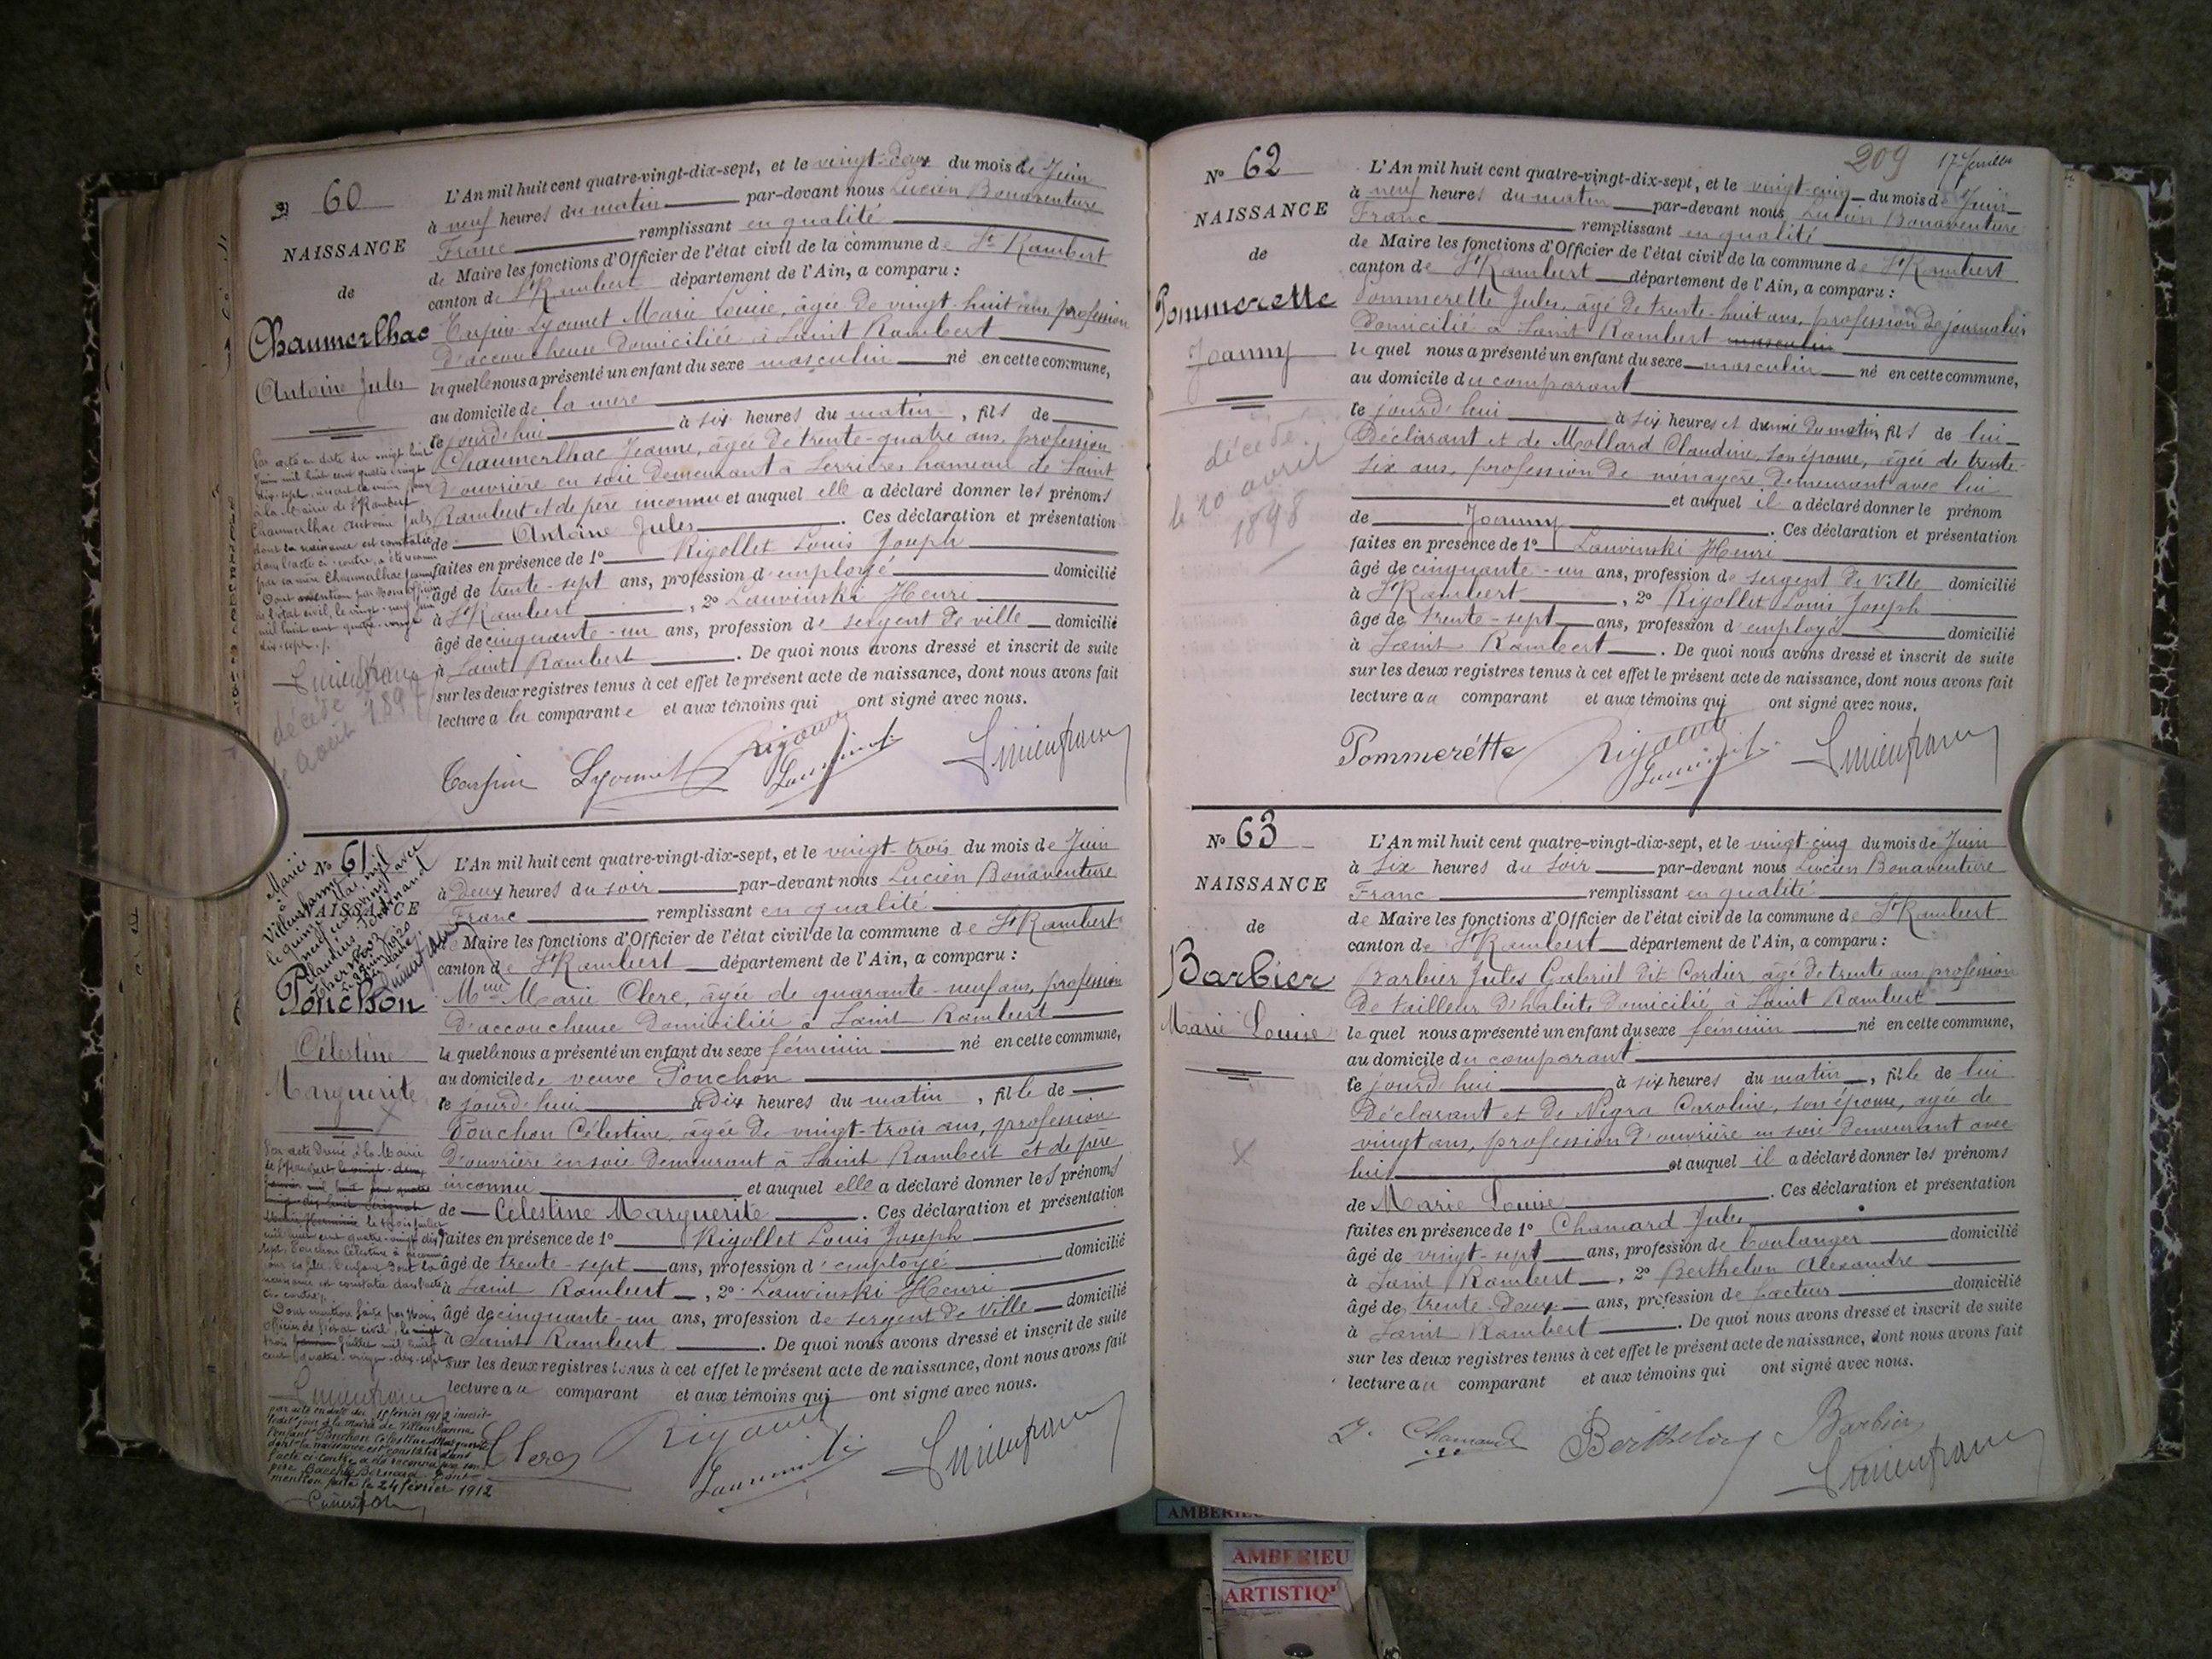 60
NAISSANCE
de
Chaumerlhac
Antoine Jules
L'An mil huit cent quatre-vingt-dix-sept, et le vingt-deux du mois de Juin
à neuf heures du matin par-devant nous Lucien Bonaventure
Franc remplissant en qualité
de Maire les fonctions d'Officier de l'état civil de la commune de St Rambert
canton de St Rambert département de l'Ain, a comparu :
Lyonnet Marie Louise, âgée de vingt-huit ans, profession
d'accoucheuse domiciliée à Saint Rambert
laquelle nous a présenté un enfant du sexe masculin né en cette commune,
au domicile de la mère
ce jourd'hui à six heures du matin, fils de
Chaumerlhac Jeanne, âgée de trente-quatre ans, profession
d'ouvrière en soie demeurant à Serrières hameau de Saint
Rambert et de père inconnu et auquel elle a déclaré donner les prénoms
de Antoine Jules. Ces déclaration et présentation
faites en présence de 1º Rigollet Louis Joseph
âgé de trente-sept ans, profession d'employé domicilié
à St Rambert, 2º Lauvinski Henri
âgé de cinquante-un ans, profession de sergent de ville domicilié
à Saint Rambert. De quoi nous avons dressé et inscrit de suite
sur les deux registres tenus à cet effet le présent acte de naissance, dont nous avons fait
lecture a la comparante et aux témoins qui ont signé avec nous.
Par acte en date du vingt huit
Juin mil huit cent quatre vingt
dix-sept
à la Mairie de St Rambert
Chaumerlhac Antoine Jules
dont la naissance est constatée
dans l'acte ci-contre, a été reconnu
par sa mère Chaumerlhac Jeanne
Dont mention par nous officier
de l'état civil, le vingt-neuf Juin
mil huit cent quatre-vingt
dix-sept
décédé
août 1897
Lyonnet
Nº 61
NAISSANCE
Ponchon
Célestine
Marguerite
L'An mil huit cent quatre-vingt-dix-sept, et le vingt-trois du mois de Juin
à deux heures du soir par-devant nous Lucien Bonaventure
Franc remplissant en qualité
de Maire les fonctions d'Officier de l'état civil de la commune de St Rambert
canton de St Rambert département de l'Ain, a comparu :
Mme Marie Clerc, âgée de quarante-neuf ans, profession
d'accoucheuse domiciliée à Saint Rambert
laquelle nous a présenté un enfant du sexe féminin né en cette commune,
au domicile de veuve Ponchon
ce jourd'hui à dix heures du matin, fille de
Ponchon Célestine, âgée de vingt-trois ans, profession
d'ouvrière en soie demeurant à Saint Rambert et de père
inconnu et auquel elle a déclaré donner les prénoms
de Célestine Marguerite. Ces déclaration et présentation
faites en présence de 1º Rigollet Louis Joseph
âgé de trente-sept ans, profession d'employé domicilié
à Saint Rambert, 2º Lauvinski Henri
âgé de cinquante-un ans, profession de sergent de ville domicilié
à Saint Rambert. De quoi nous avons dressé et inscrit de suite
sur les deux registres tenus à cet effet le présent acte de naissance, dont nous avons fait
lecture au comparant et aux témoins qui ont signé avec nous.
par acte en date du février 1912 inscrit
le dit jour à la mairie de Villeurbanne
l'enfant Ponchon Célestine Marguerite
dont la naissance est constatée dans
l'acte ci-contre a été reconnu par son
père Bernard Dont
mention faite le 24 février 1912
Clerc
209
Nº 62
NAISSANCE
de
Pommerette
Joanny
décédé
le 20 avril
1898
L'An mil huit cent quatre-vingt-dix-sept, et le vingt-cinq du mois de Juin
à neuf heures du matin par-devant nous Lucien Bonaventure
Franc remplissant en qualité
de Maire les fonctions d'Officier de l'état civil de la commune de St Rambert
canton de St Rambert département de l'Ain, a comparu :
Pommerette Jules, âgé de trente-huit ans, profession de journalier
domicilié à Saint Rambert
le quel nous a présenté un enfant du sexe masculin né en cette commune,
au domicile du comparant
ce jourd'hui à six heures et demie du matin, fils de lui
Déclarant et de Mollard Claudine, son épouse, âgée de trente-
six ans, profession de ménagère demeurant avec lui
et auquel il a déclaré donner le prénom
de Joanny. Ces déclaration et présentation
faites en présence de 1º Lauvinski Henri
âgé de cinquante-un ans, profession de sergent de ville domicilié
à St Rambert, 2º Rigollet Louis Joseph
âgé de trente-sept ans, profession d'employé domicilié
à Saint Rambert. De quoi nous avons dressé et inscrit de suite
sur les deux registres tenus à cet effet le présent acte de naissance, dont nous avons fait
lecture au comparant et aux témoins qui ont signé avec nous.
Pommerétte
Nº 63
NAISSANCE
de
Barbier
Marie Louise
L'An mil huit cent quatre-vingt-dix-sept, et le vingt-cinq du mois de Juin
à six heures du soir par-devant nous Lucien Bonaventure
Franc remplissant en qualité
de Maire les fonctions d'Officier de l'état civil de la commune de St Rambert
canton de St Rambert département de l'Ain, a comparu :
Barbier Jules Gabriel dit Cordier, âgé de trente ans, profession
de tailleur d'habits, domicilié à Saint Rambert
le quel nous a présenté un enfant du sexe féminin né en cette commune,
au domicile du comparant
ce jourd'hui à six heures du matin, fille de lui
Déclarant et de Nigra Caroline, son épouse, âgée de
vingt ans, profession d'ouvrière en soie demeurant avec
lui et auquel il a déclaré donner les prénoms
de Marie Louise. Ces déclaration et présentation
faites en présence de 1º Chamard Jules
âgé de vingt-sept ans, profession de boulanger domicilié
à Saint Rambert, 2º Berthelon Alexandre
âgé de trente-deux ans, profession de facteur domicilié
à Saint Rambert. De quoi nous avons dressé et inscrit de suite
sur les deux registres tenus à cet effet le présent acte de naissance, dont nous avons fait
lecture au comparant et aux témoins qui ont signé avec nous.
J. Chamard Berthelon Barbier
AMBERIEU
ARTISTIQ'